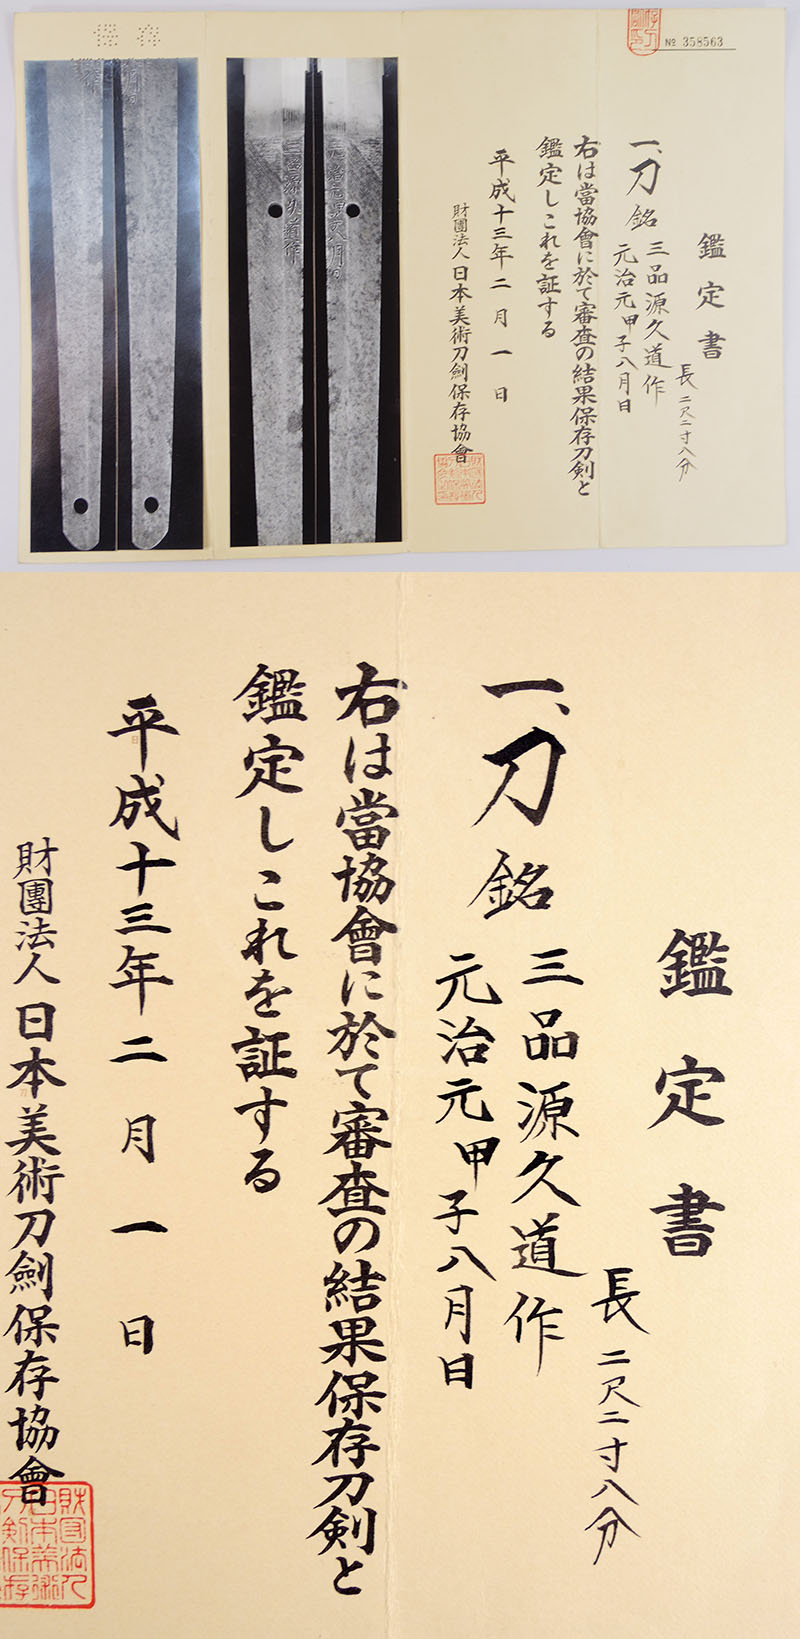 保存
№ 358563
鑑定書
長 二尺二寸八分
一、刀 銘 三品源久道作
元治元甲子八月日
右は當協會に於て審査の結果保存刀剣と
鑑定しこれを証する
平成十三年二月一日
財團法人日本美術刀剣保存協會
三品源久道作
元治元甲子八月日
鑑定書
長 二尺二寸八分
一、刀 銘 三品源久道作
元治元甲子八月日
右は當協會に於て審査の結果保存刀剣と
鑑定しこれを証する
平成十三年二月一日
財團法人日本美術刀劍保存協會
財団法人
日本美術
刀剣保存